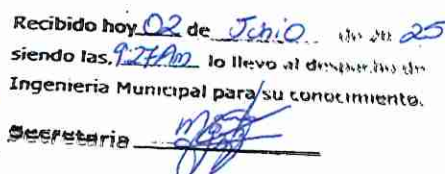 Recibido hoy 02 de Junio de 20 25
siendo las, 9:27Am lo llevo al despacho de
Ingenieria Municipal para su conocimiento.
Secretaria